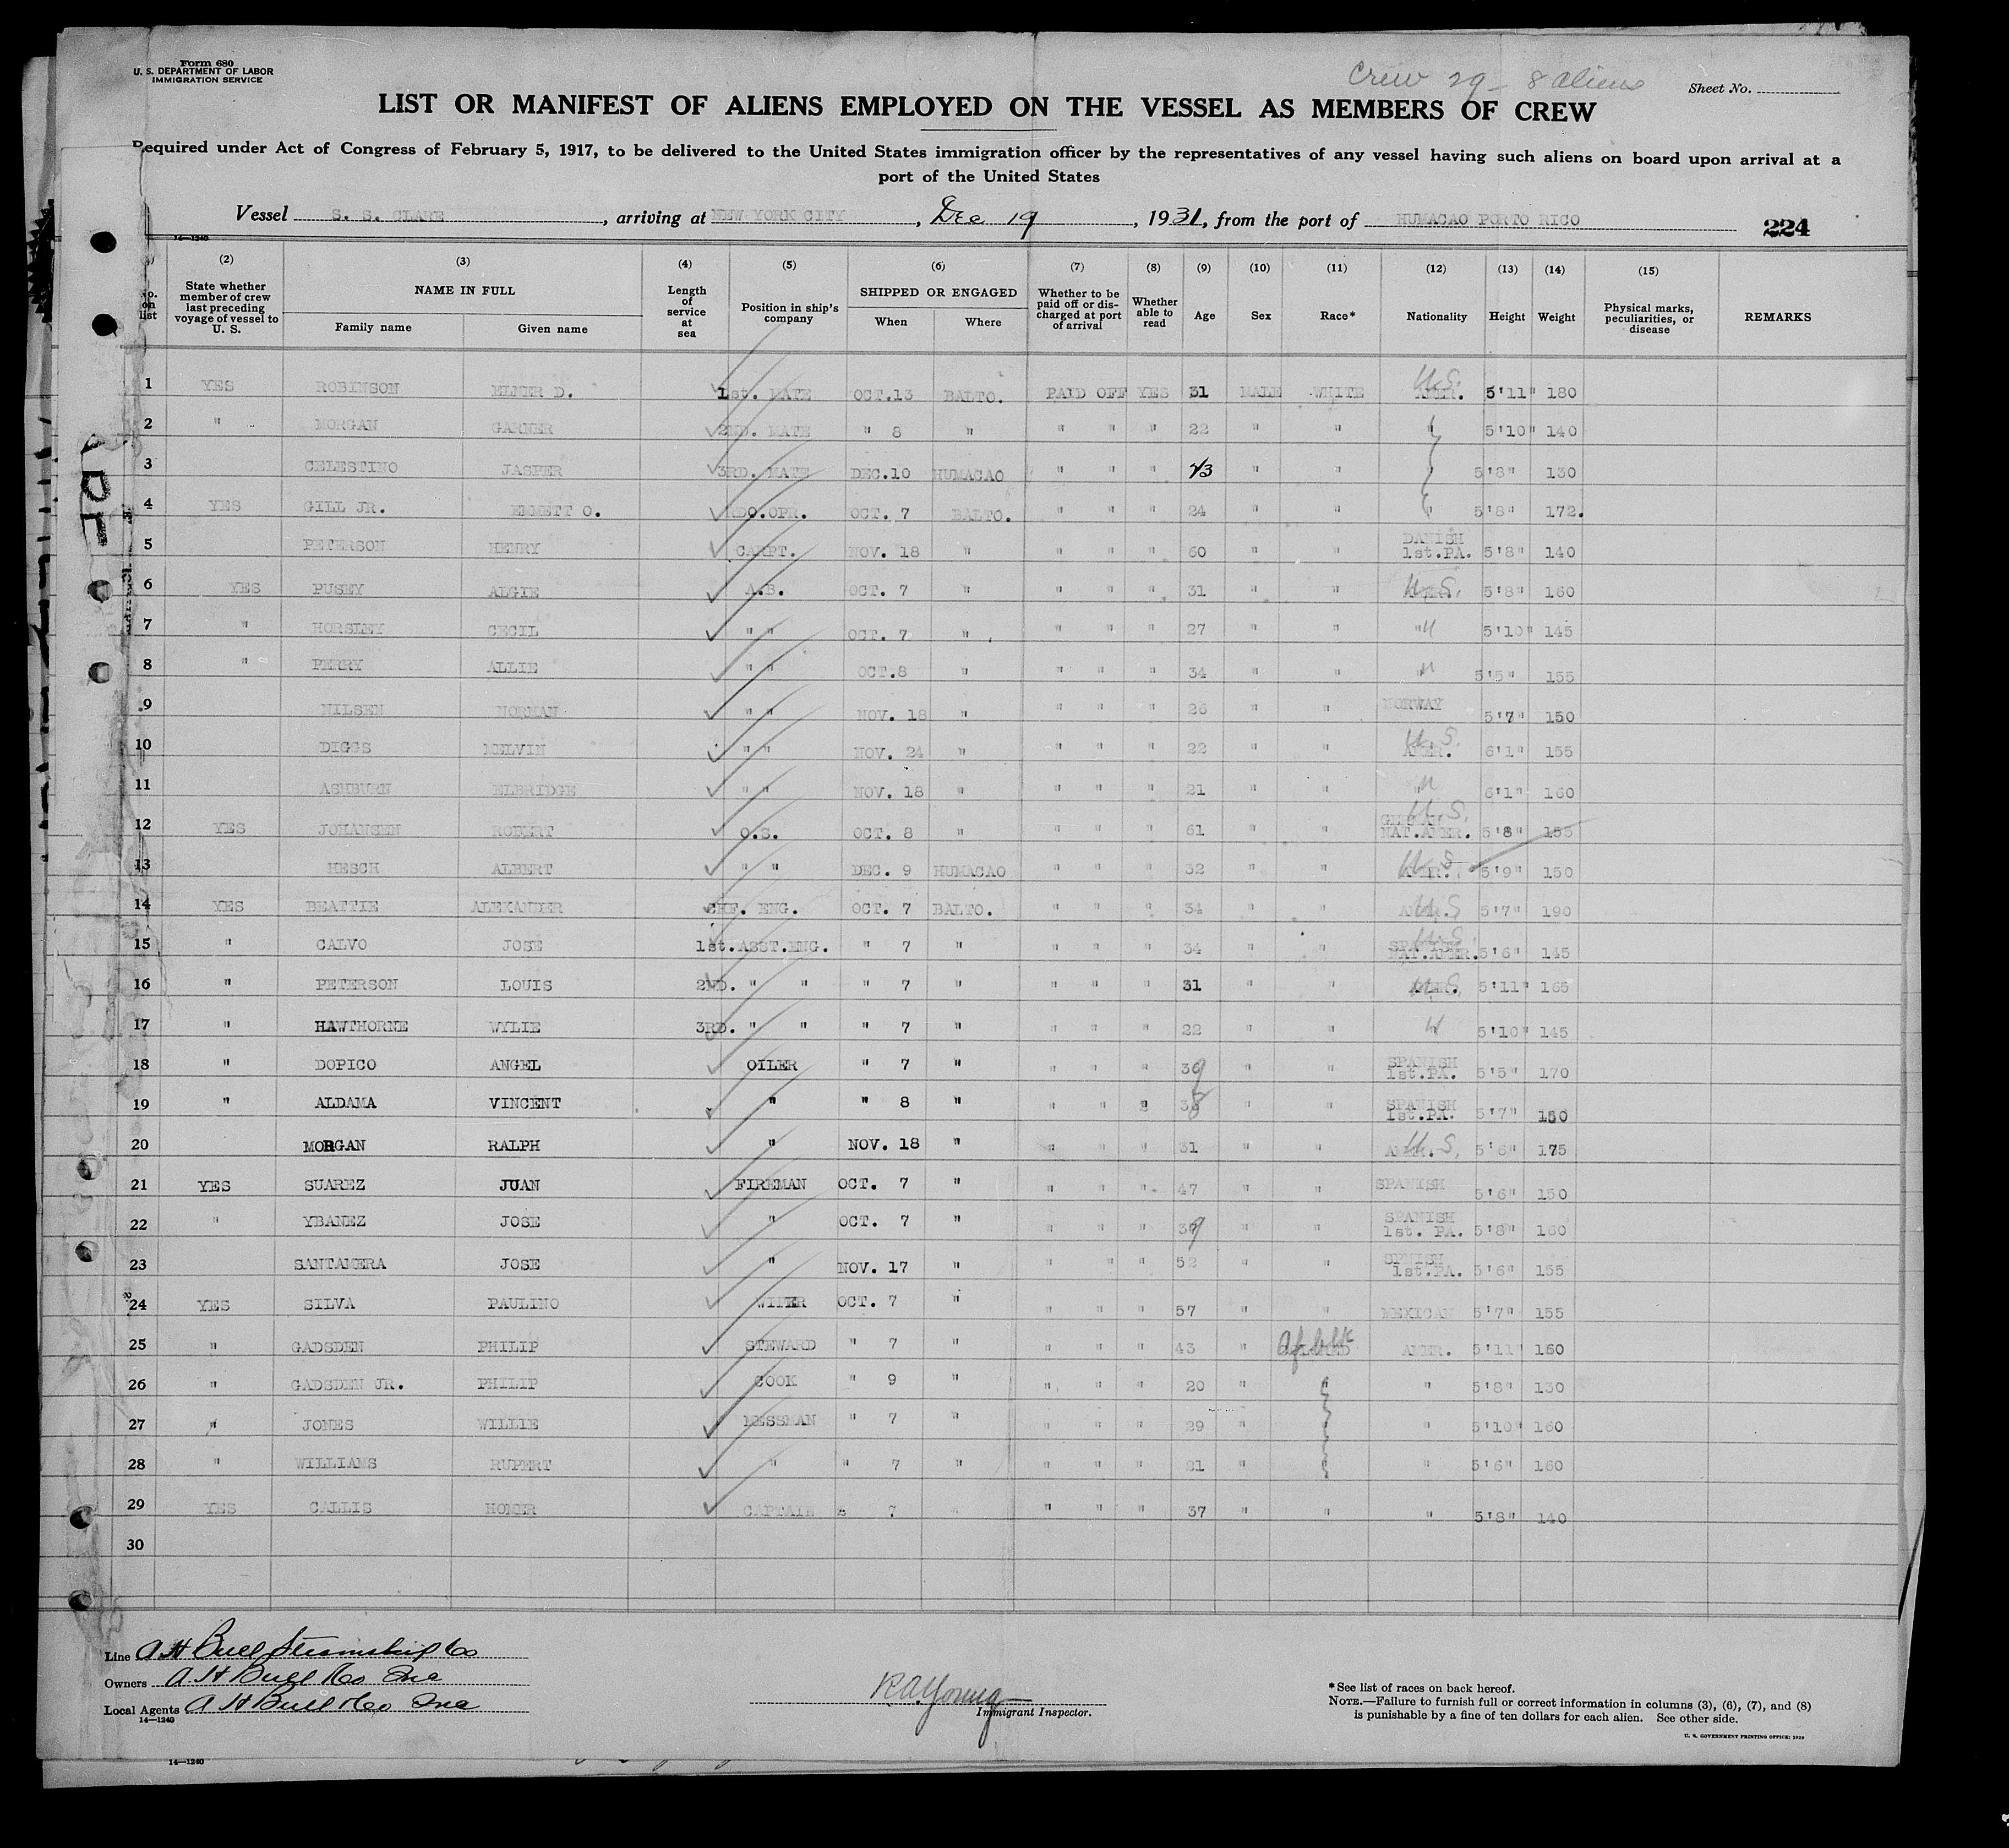 Form 680
U. S. DEPARTMENT OF LABOR
IMMIGRATION SERVICE
Crew 29 - 8 aliens
Sheet No.
LIST OR MANIFEST OF ALIENS EMPLOYED ON THE VESSEL AS MEMBERS OF CREW
Required under Act of Congress of February 5, 1917, to be delivered to the United States immigration officer by the representatives of any vessel having such aliens on board upon arrival at a
port of the United States
Vessel S. S. CLARE, arriving at NEW YORK CITY, Dec 19, 1931, from the port of HUMACAO PORTO RICO 224
14—1240
(2) (3) (4) (5) (6) (7) (8) (9) (10) (11) (12) (13) (14) (15)
No. on list State whether member of crew last preceding voyage of vessel to U. S. NAME IN FULL Family name Given name Length of service at sea Position in ship's company SHIPPED OR ENGAGED When Where Whether to be paid off or discharged at port of arrival Whether able to read Age Sex Race* Nationality Height Weight Physical marks, peculiarities, or disease REMARKS
1 YES ROBINSON ELMER D. 1st. MATE OCT.13 BALTO. PAID OFF YES 31 MALE WHITE U.S. AMER. 5'11" 180
2 " MORGAN GARNER 2ND. MATE " 8 " " " " 22 " " " 5'10" 140
3 CELESTINO JASPER 3RD. MATE DEC.10 HUMACAO " " " 43 " " " 5'8" 130
4 YES GILL JR. EMMETT O. RDO.OPR. OCT. 7 BALTO. " " " 24 " " " 5'8" 172.
5 PETERSON HENRY CARPT. NOV. 18 " " " " 60 " " DANISH 1st.PA. 5'8" 140
6 YES PUSEY ALGIE A.B. OCT. 7 " " " " 31 " " U.S. 5'8" 160
7 " HORSLEY CECIL " " OCT. 7 " " " " 27 " " " 5'10" 145
8 " PERRY ALLIE " " OCT.8 " " " " 34 " " " 5'5" 155
9 NILSEN NORMAN " " NOV. 18 " " " " 26 " " NORWAY 5'7" 150
10 DIGGS MELVIN " " NOV. 24 " " " " 22 " " U.S. AMER. 6'1" 155
11 ASHBURN ELBRIDGE " " NOV. 18 " " " " 21 " " " 6'1" 160
12 YES JOHANSEN ROBERT O.S. OCT. 8 " " " " 61 " " U.S. GERMAN NAT.AMER. 5'8" 155
13 HESCH ALBERT " " DEC. 9 HUMACAO " " " 32 " " U.S. AMER. 5'9" 150
14 YES BEATTIE ALEXANDER CHF. ENG. OCT. 7 BALTO. " " " 34 " " U.S. 5'7" 190
15 " CALVO JOSE 1st.ASST.ENG. " 7 " " " " 34 " " U.S. SPANISH NAT.AMER. 5'6" 145
16 " PETERSON LOUIS 2ND. " " " 7 " " " " 31 " " U.S. 5'11" 165
17 " HAWTHORNE WYLIE 3RD. " " " 7 " " " " 22 " " " 5'10" 145
18 " DOPICO ANGEL OILER " 7 " " " " 39 " " SPANISH 1st.PA. 5'5" 170
19 " ALDAMA VINCENT " " 8 " " " " 38 " " SPANISH 1st.PA. 5'7" 150
20 MORGAN RALPH " NOV. 18 " " " " 31 " " U.S. 5'6" 175
21 YES SUAREZ JUAN FIREMAN OCT. 7 " " " " 47 " " SPANISH 5'6" 150
22 " YBANEZ JOSE " OCT. 7 " " " " 39 " " SPANISH 1st. PA. 5'8" 160
23 SANTAMERA JOSE " NOV. 17 " " " " 52 " " SPNISH 1st.PA. 5'6" 155
24 YES SILVA PAULINO WIPER OCT. 7 " " " " 57 " " MEXICAN 5'7" 155
25 " GADSDEN PHILIP STEWARD " 7 " " " " 43 " Af. blk AMER. 5'11" 160
26 " GADSDEN JR. PHILIP COOK " 9 " " " " 20 " " " 5'8" 130
27 " JONES WILLIE MESSMAN " 7 " " " " 29 " " " 5'10" 160
28 " WILLIAMS RUPERT " " 7 " " " " 21 " " " 5'6" 160
29 YES CALLIS HOMER CAPTAIN 7 " " " " 37 " " " 5'8" 140
30
Line A H Bull Steamship Co
Owners A H Bull & Co Inc
Local Agents A H Bull & Co Inc
14—1240
R A Young
Immigrant Inspector.
*See list of races on back hereof.
NOTE.—Failure to furnish full or correct information in columns (3), (6), (7), and (8)
is punishable by a fine of ten dollars for each alien. See other side.
U. S. GOVERNMENT PRINTING OFFICE: 1929
14—1240